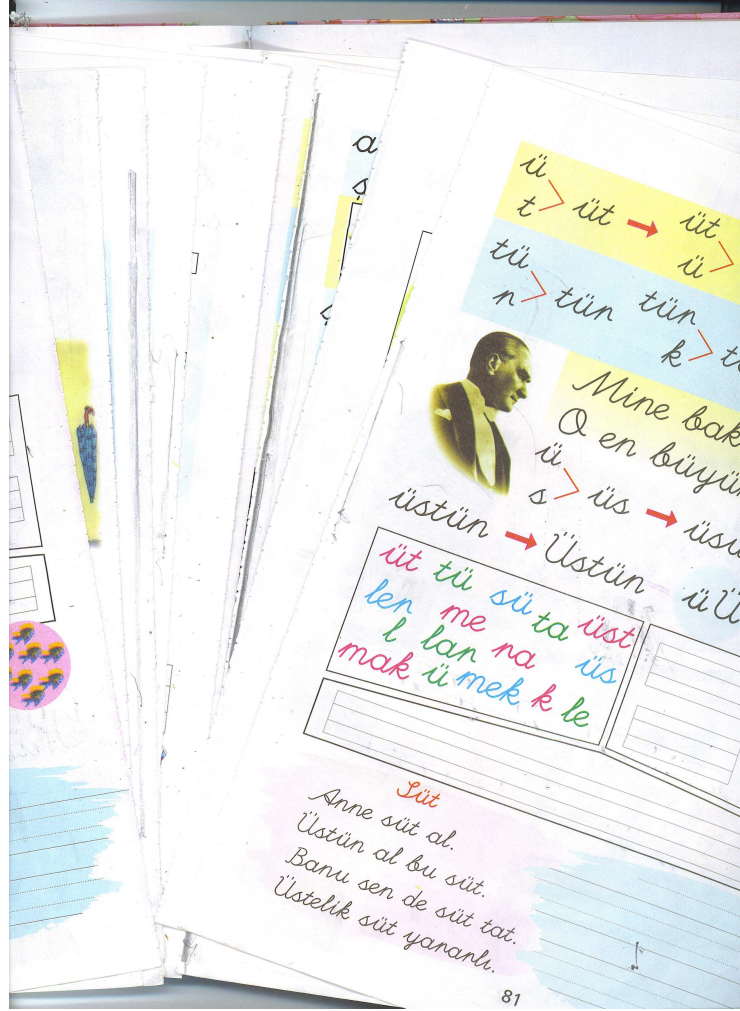 a
s
ü
t
üt → üt
ü
tü
n
tün tün
k
Mine bak
O en büyü
ü
s
üs → üsü
üstün → Üstün ü Ü
üt tü sü ta üst
len me na üs
l lan
mak ü mek k le
Süt
Anne süt al.
Üstün al bu süt.
Banu sen de süt tat.
Üstelik süt yararlı.
81